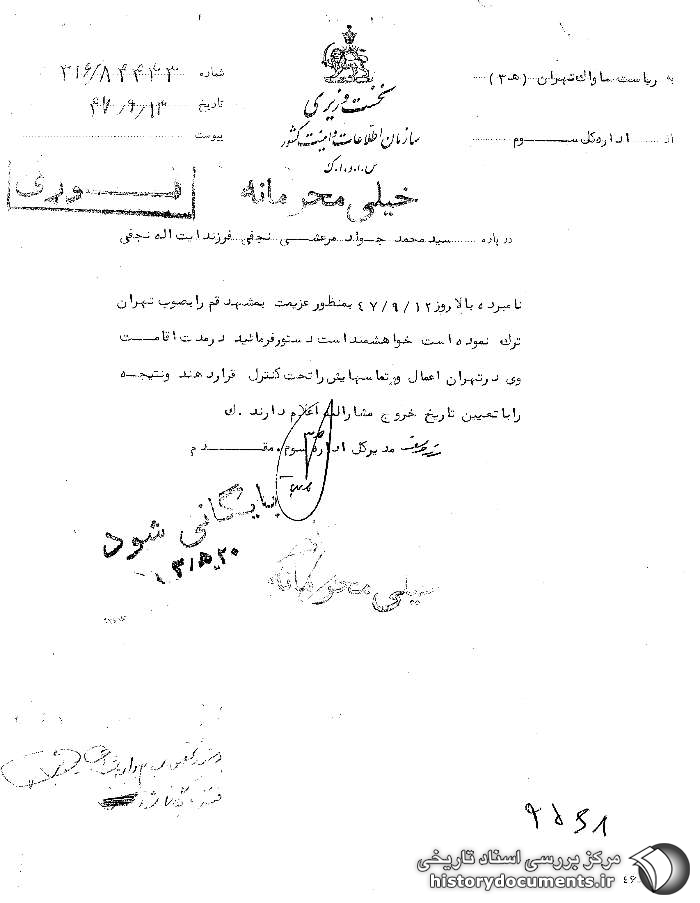 به ریاست ساواک تهران (ه ۳)
از اداره کل سوم
نخست وزیری
سازمان اطلاعات و امنیت کشور
س.ا.و.ا.ک
شماره ۳۱۶/۸۴۴۳۳
تاریخ ۴۷/۹/۱۳
پیوست
خیلی محرمانه
فوری
درباره سید محمد جواد مرعشی نجفی فرزند ایت اله نجفی
نامبرده بالا روز ۴۷/۹/۱۲ بمنظور عزیمت بمشهد قم را بصوب تهران
ترک نموده است خواهشمند است دستور فرمائید در مدت اقامت
وی در تهران اعمال و تماسهایش را تحت کنترل قرار دهند و نتیجه
را با تعیین تاریخ خروج مشارالیه اعلام دارند .ک
مدیر کل اداره سوم. مقدم
بایگانی شود
۳۱۵.۲۰
خیلی محرمانه
مرکز بررسی اسناد تاریخی
historydocuments.ir